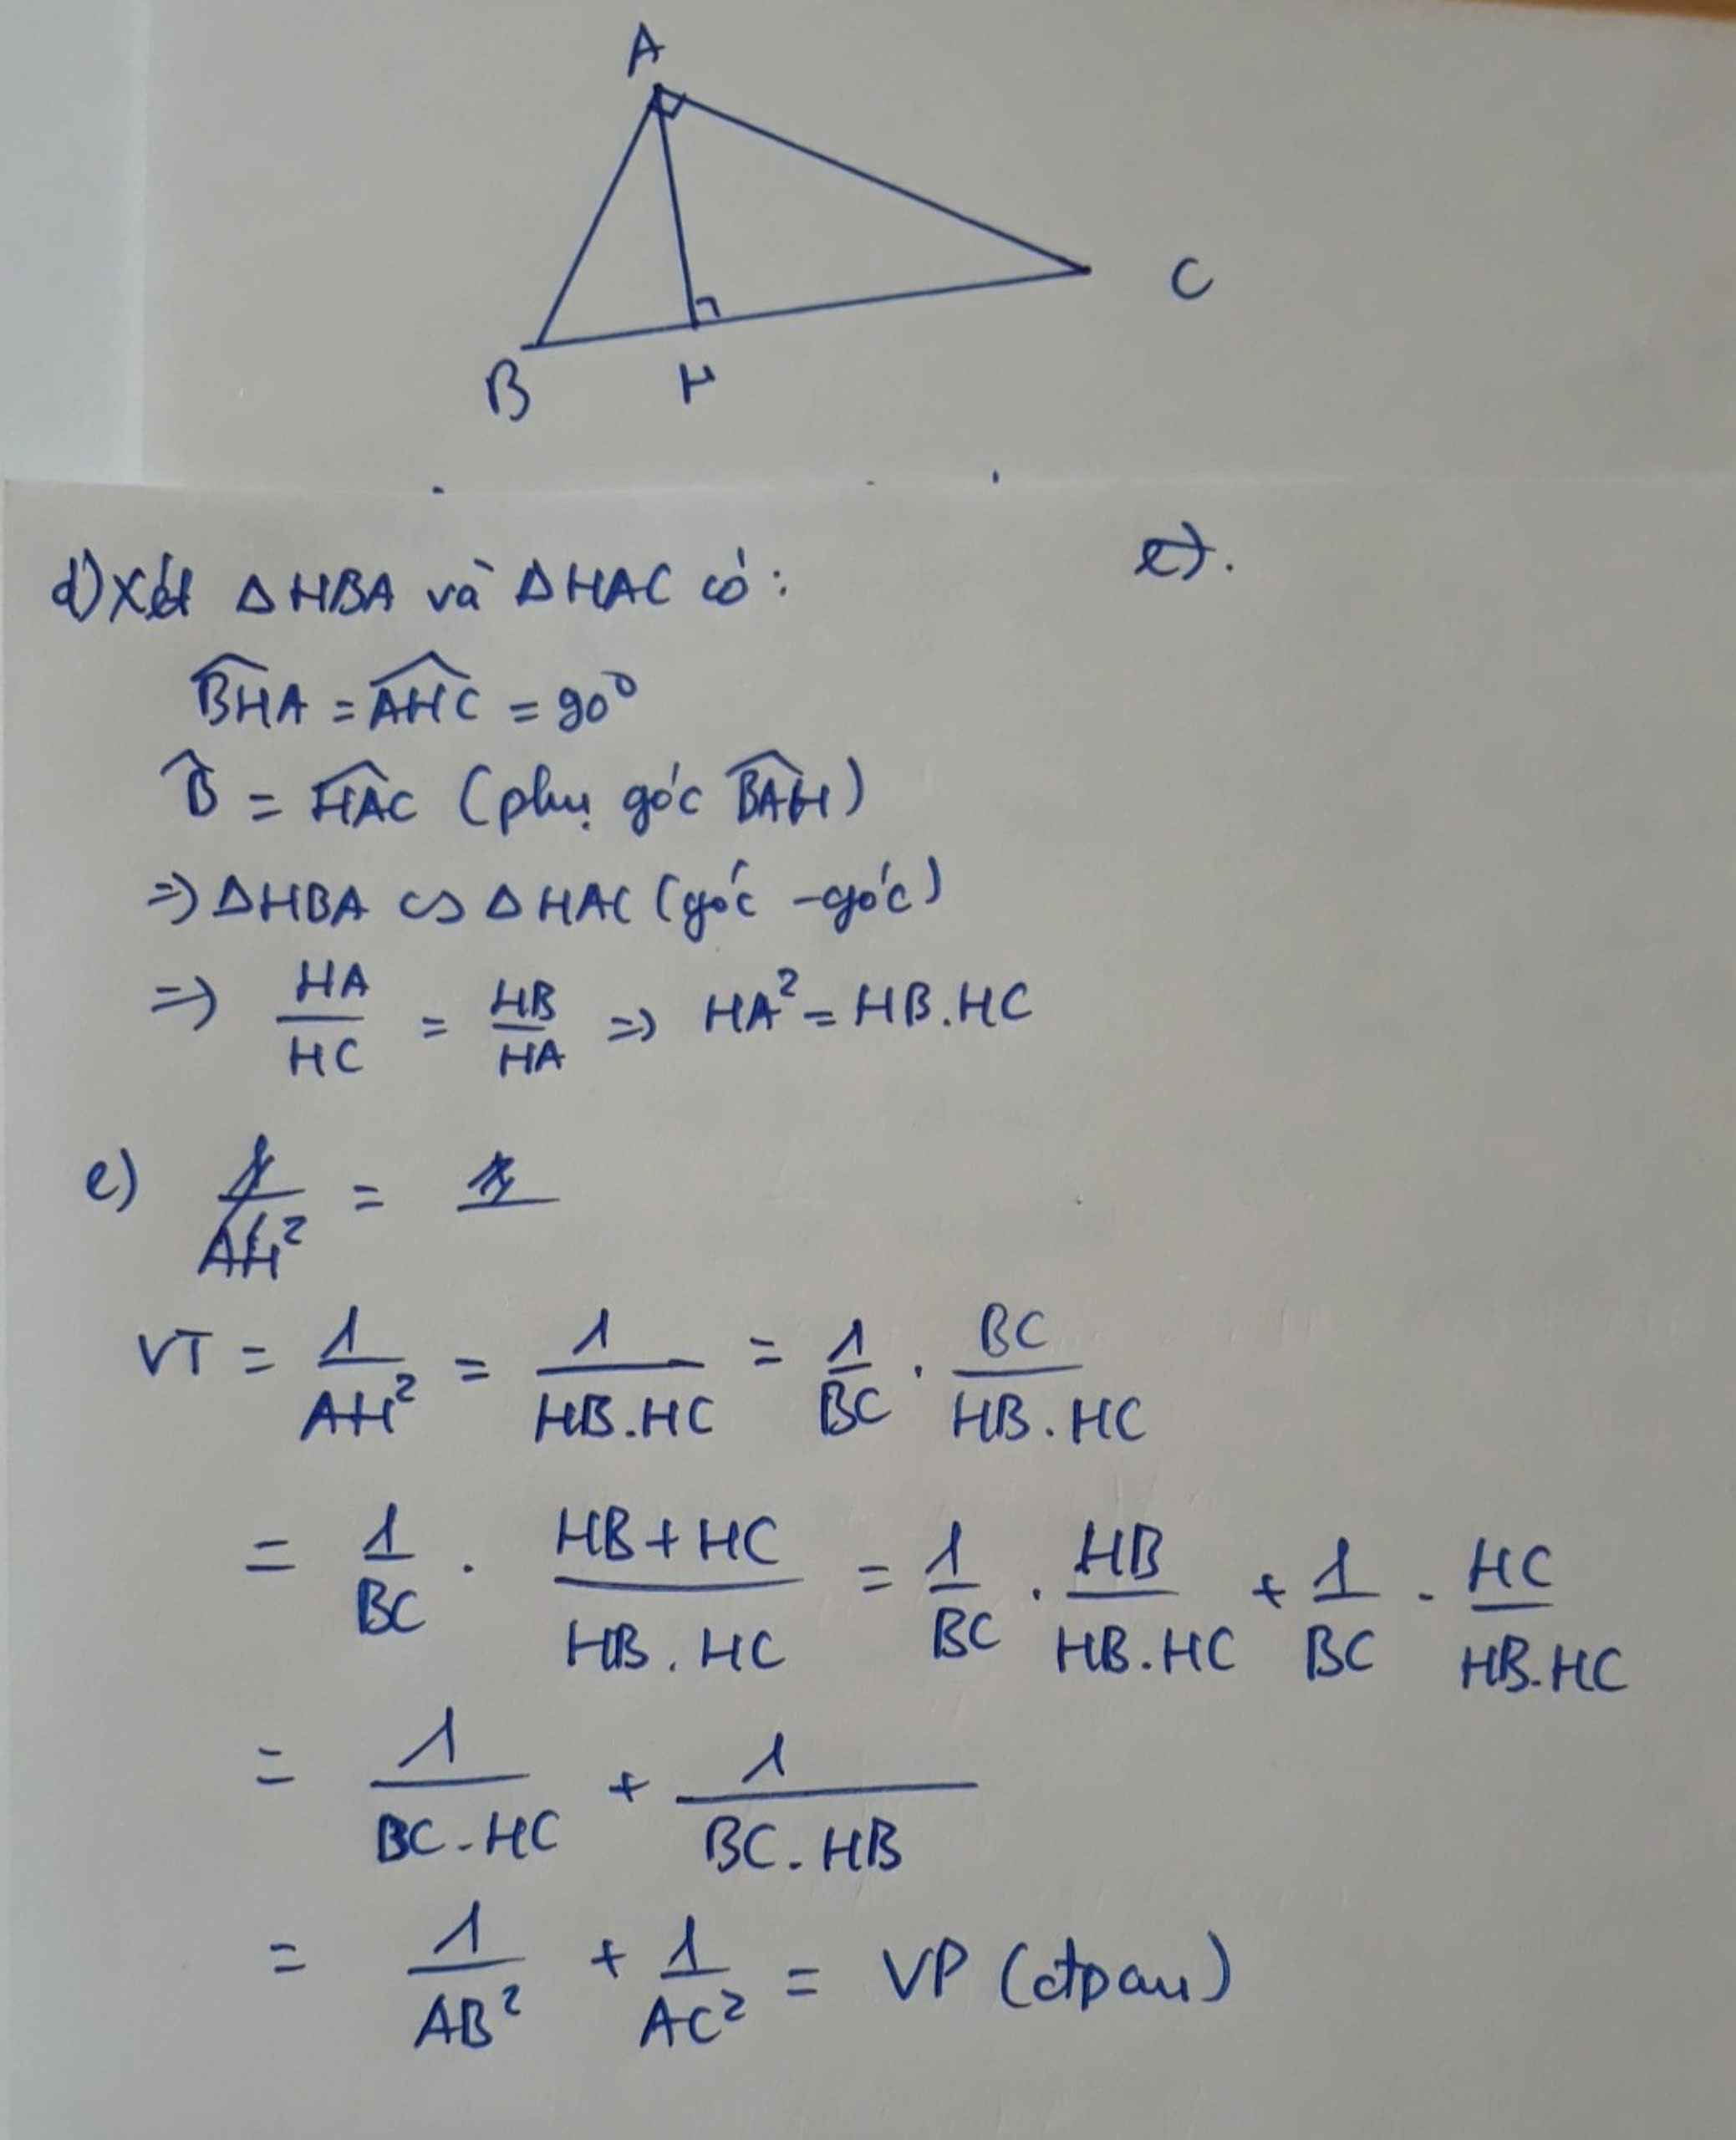 A
C
B H
d) Xét ΔHBA và ΔHAC có:
e).
\widehat{BHA} = \widehat{AHC} = 90°
\widehat{B} = \widehat{HAC} (phụ góc \widehat{BAH})
=> ΔHBA ∽ ΔHAC (góc - góc)
=> HA/HC = HB/HA => HA² = HB.HC
e) 1/AH² =
VT = 1/AH² = 1/(HB.HC) = 1/BC . BC/(HB.HC)
= 1/BC . (HB+HC)/(HB.HC) = 1/BC . HB/(HB.HC) + 1/BC . HC/(HB.HC)
= 1/(BC.HC) + 1/(BC.HB)
= 1/AB² + 1/AC² = VP (đpcm)